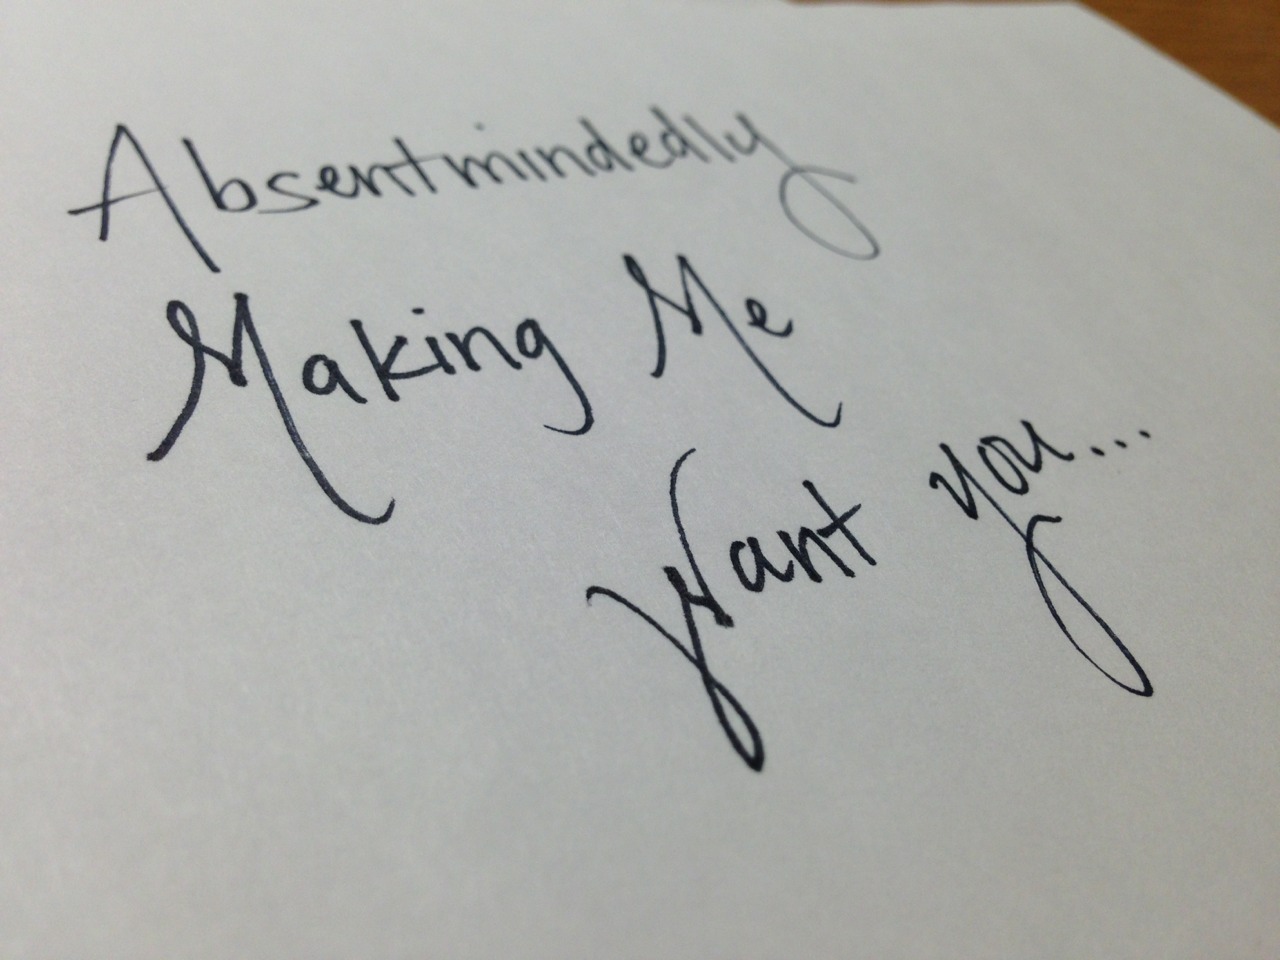 Absentmindedly
Making Me
Want you...